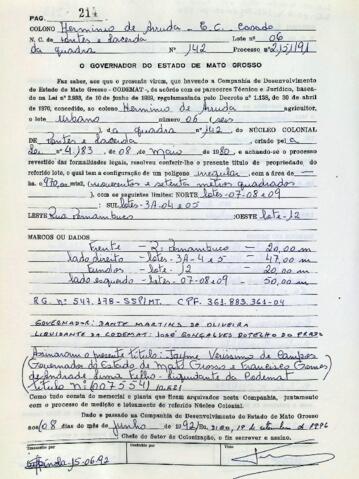 PAG. 214
COLONO Herminio de Arruda - E. C. Casado
N. C. de Pontes e Lacerda Lote nº 06
da quadra Nº 142 Processo nº 2151/91
O GOVERNADOR DO ESTADO DE MATO GROSSO
Faz saber, aos que o presente virem, que havendo a Companhia de Desenvolvimento
do Estado de Mato Grosso - CODEMAT-, de acôrdo com os pareceres Técnico e Jurídico, basea-
da na Lei nº 2.933, de 10 de junho de 1969, regulamentada pelo Decreto nº 1.138, de 30 de abril
de 1970, concedido, ao colono Herminio de Arruda agricultor,
o lote urbano número 06 (seis
) da quadra nº 142 do NÚCLEO COLONIAL
DE Pontes e Lacerda criado pela
Lei 4.183 de 08 de maio de 1980, e achando-se o processo
revestido das formalidades legais, resolveu conferir-lhe o presente título de propriedade, do
referido lote, o qual tem a configuração de um polígono irregular com a área de
ha. 970,00 m² (novecentos e setenta metros quadrados
), com os seguintes limites: NORTE lotes-07-08 e 09
SUL lotes-3A-04 e 05
LESTE Rua Pernambuco OESTE lote-12
MARCOS OU DADOS
Frente - R. Pernambuco - 20,00 m
lado direito - lotes-3A-4 e 5 - 47,00 m
Fundos - lote-12 - 20,00 m
lado esquerdo - lotes-07-08 e 09 - 50,00 m
R.G. nº 547.178-SSP/MT. CPF. 361.883.361-04
GOVERNADOR: DANTE MARTINS DE OLIVEIRA
LIQUIDANTE DA CODEMAT: JOSÉ GONÇALVES BOTELHO DO PRADO
Assinaram o presente título: Jayme Veríssimo de Campos
Governador do Estado de Mato Grosso e Francisco Gomes
de Andrade Lima Filho - Liquidante da Codemat
título nº (007554)
Como tudo consta do memorial e planta que ficam arquivados nesta Companhia, juntamente
com o processo de medição e loteamento do referido Núcleo Colonial.
Dado e passado na Companhia de Desenvolvimento do Estado de Mato Grosso
aos 08 dias do mês de junho de 1992
Chefe do Setor de Colonização, o fiz escrever e assino.
Conferido por Visto
15-06-92